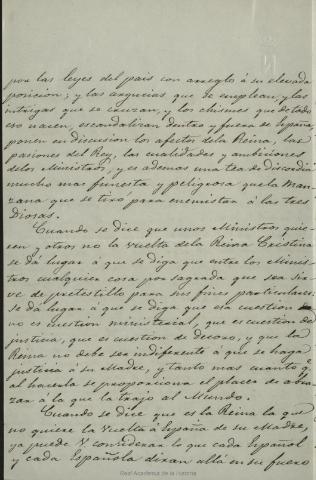 por las leyes del pais con arreglo á su elevada
posicion; y las argucias que se emplean, y las
intrigas que se cruzan, y los chismes que de todo
eso nacen, escandalizan dentro y fuera de España,
ponen en discusion los afectos de la Reina, las
pasiones del Rey, las cualidades y ambiciones
de los Ministros, y es ademas una tea de discordia
mucho mas funesta y peligrosa que la Man-
zana que se tiró para enemistar á las tres
Diosas.
Cuando se dice que unos Ministros quie-
ren y otros no la vuelta de la Reina Cristina
se dá lugar á que se diga que entre los Minis-
tros cualquiera cosa por sagrada que sea sir-
ve de pretestillo para sus fines particulares:
se dá lugar á que se diga que esa cuestion
no es cuestion ministerial, que es cuestion de
justicia, que es cuestion de decoro, y que la
Reina no debe ser indiferente á que se haga
justicia á su Madre, y tanto mas cuanto q.
al hacerla se proporciona el placer de abra-
zar á la que la trajo al Mundo.
Cuando se dice que es la Reina la que
no quiere la vuelta á España de su Madre,
ya puede V. considerar lo que cada Español
y cada Española dirán allá en su fuero
Real Academia de la Historia